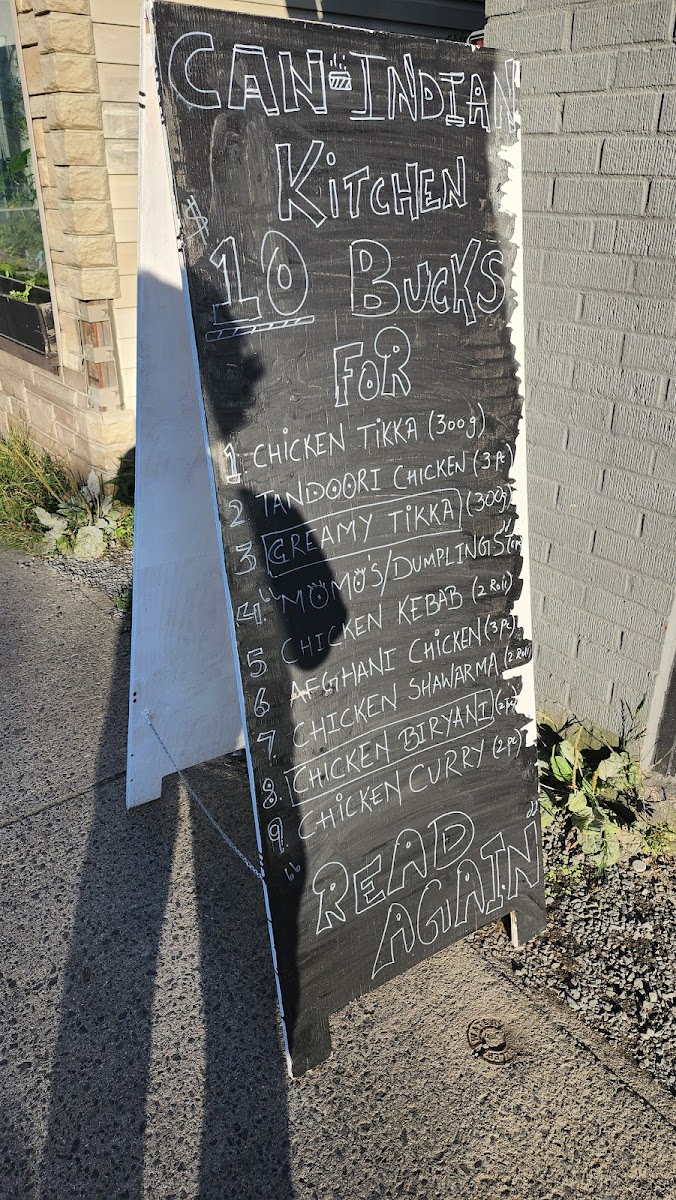 CAN-INDIAN
KITCHEN
$10 BUCKS
FOR
1. CHICKEN TIKKA (300g)
2 TANDOORI CHICKEN (3 Pc)
3 CREAMY TIKKA (300g)
4. "MOMO'S/DUMPLINGS"
5 CHICKEN KEBAB (2 Roll)
6 AFGHANI CHICKEN (3 pc)
7 CHICKEN SHAWARMA (2 Roll)
8. CHICKEN BIRYANI (2 pc)
9. CHICKEN CURRY (2 pc)
"READ
AGAIN"